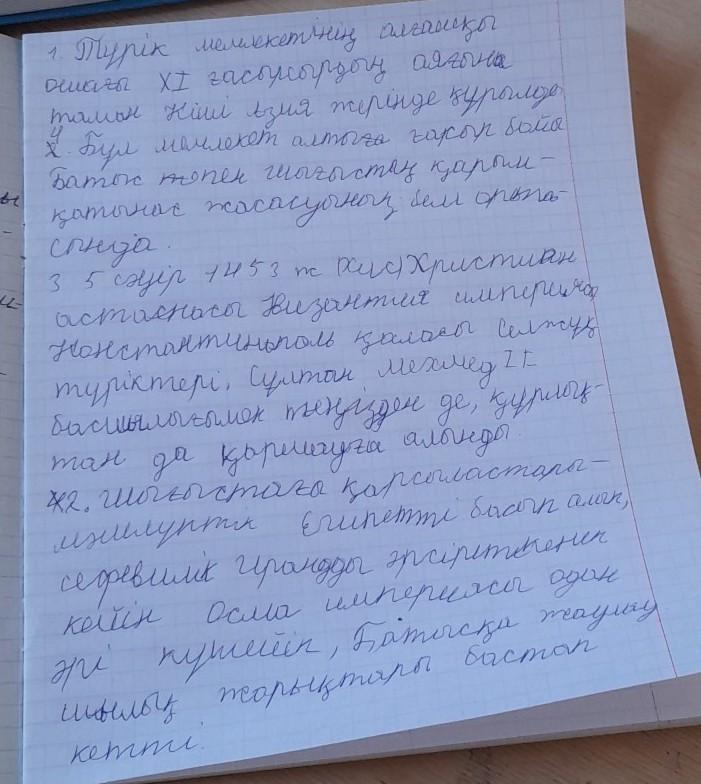 1. Түрік мемлекетінің алғашқы
ошағы XI ғасырсырдың аяғына
таман Кіші Азия жерінде құрылды
4. Бұл мемлекет алтыға ғасыр бойы
Батыс пен шығыстың қарым-
қатынас жасасуының бел орта-
сында.
3 5 сәуір 1453 ж Христиан
астанасы Византия империясы
Константинополь қаласы Селжұқ
түріктері, Сұлтан Мехмед II
басшылығымен теңізден де, құрлық-
тан да қоршауға алынды.
2. Шығыстағы қарсыластары-
мәмлүктік Египетті басып алып,
сефевилік иранды әлсіреткеннен
кейін Осма империясы одан
әрі күшейіп, Батысқа жаулау
шылық жорықтары бастап
кетті.